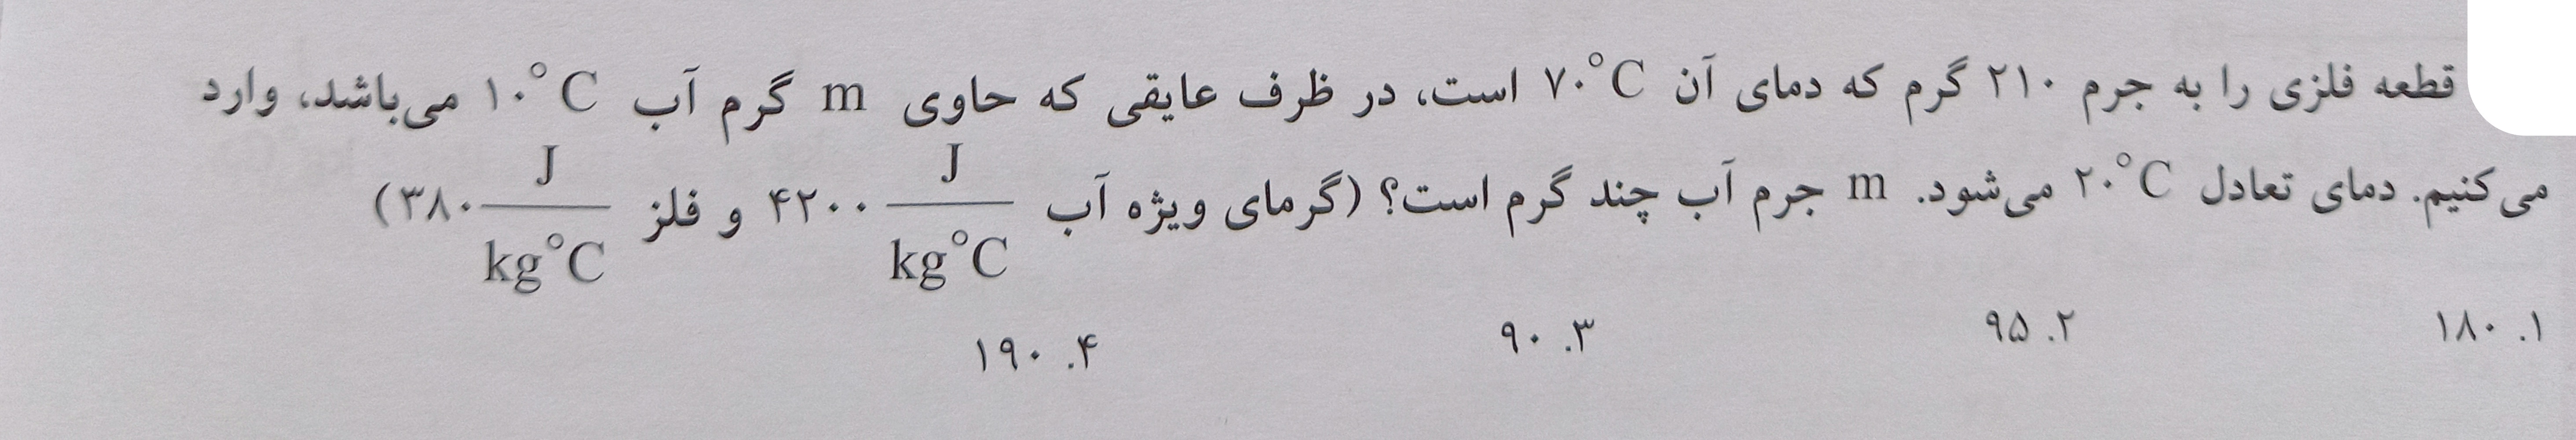 قطعه فلزی را به جرم ۲۱۰ گرم که دمای آن ۷۰°C است، در ظرف عایقی که حاوی m گرم آب ۱۰°C می‌باشد، وارد
می‌کنیم. دمای تعادل ۲۰°C می‌شود. m جرم آب چند گرم است؟ (گرمای ویژه آب ۴۲۰۰ J/kg°C و فلز ۳۸۰ J/kg°C)
۱. ۱۸۰ ۲. ۹۵ ۳. ۹۰ ۴. ۱۹۰